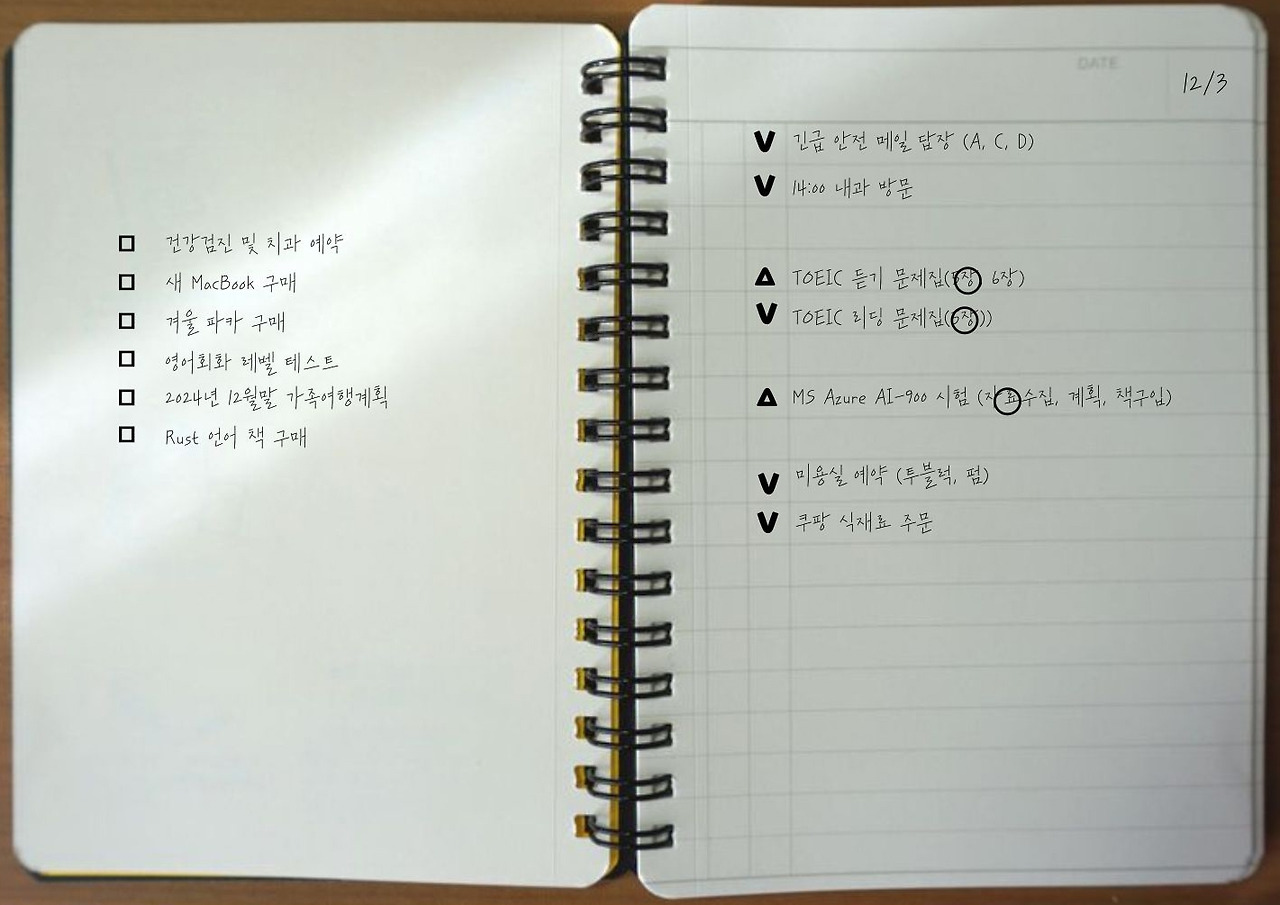 건강검진 및 치과 예약
새 MacBook 구매
겨울 파카 구매
영어회화 레벨 테스트
2024년 12월말 가족여행계획
Rust 언어 책 구매
DATE
12/3
V 긴급 안전 메일 답장 (A, C, D)
V 14:00 내과 방문
△ TOEIC 듣기 문제집(5장, 6장)
V TOEIC 리딩 문제집(6장))
△ MS Azure AI-900 시험 (자료수집, 계획, 책구입)
V 미용실 예약 (투블럭, 펌)
V 쿠팡 식재료 주문